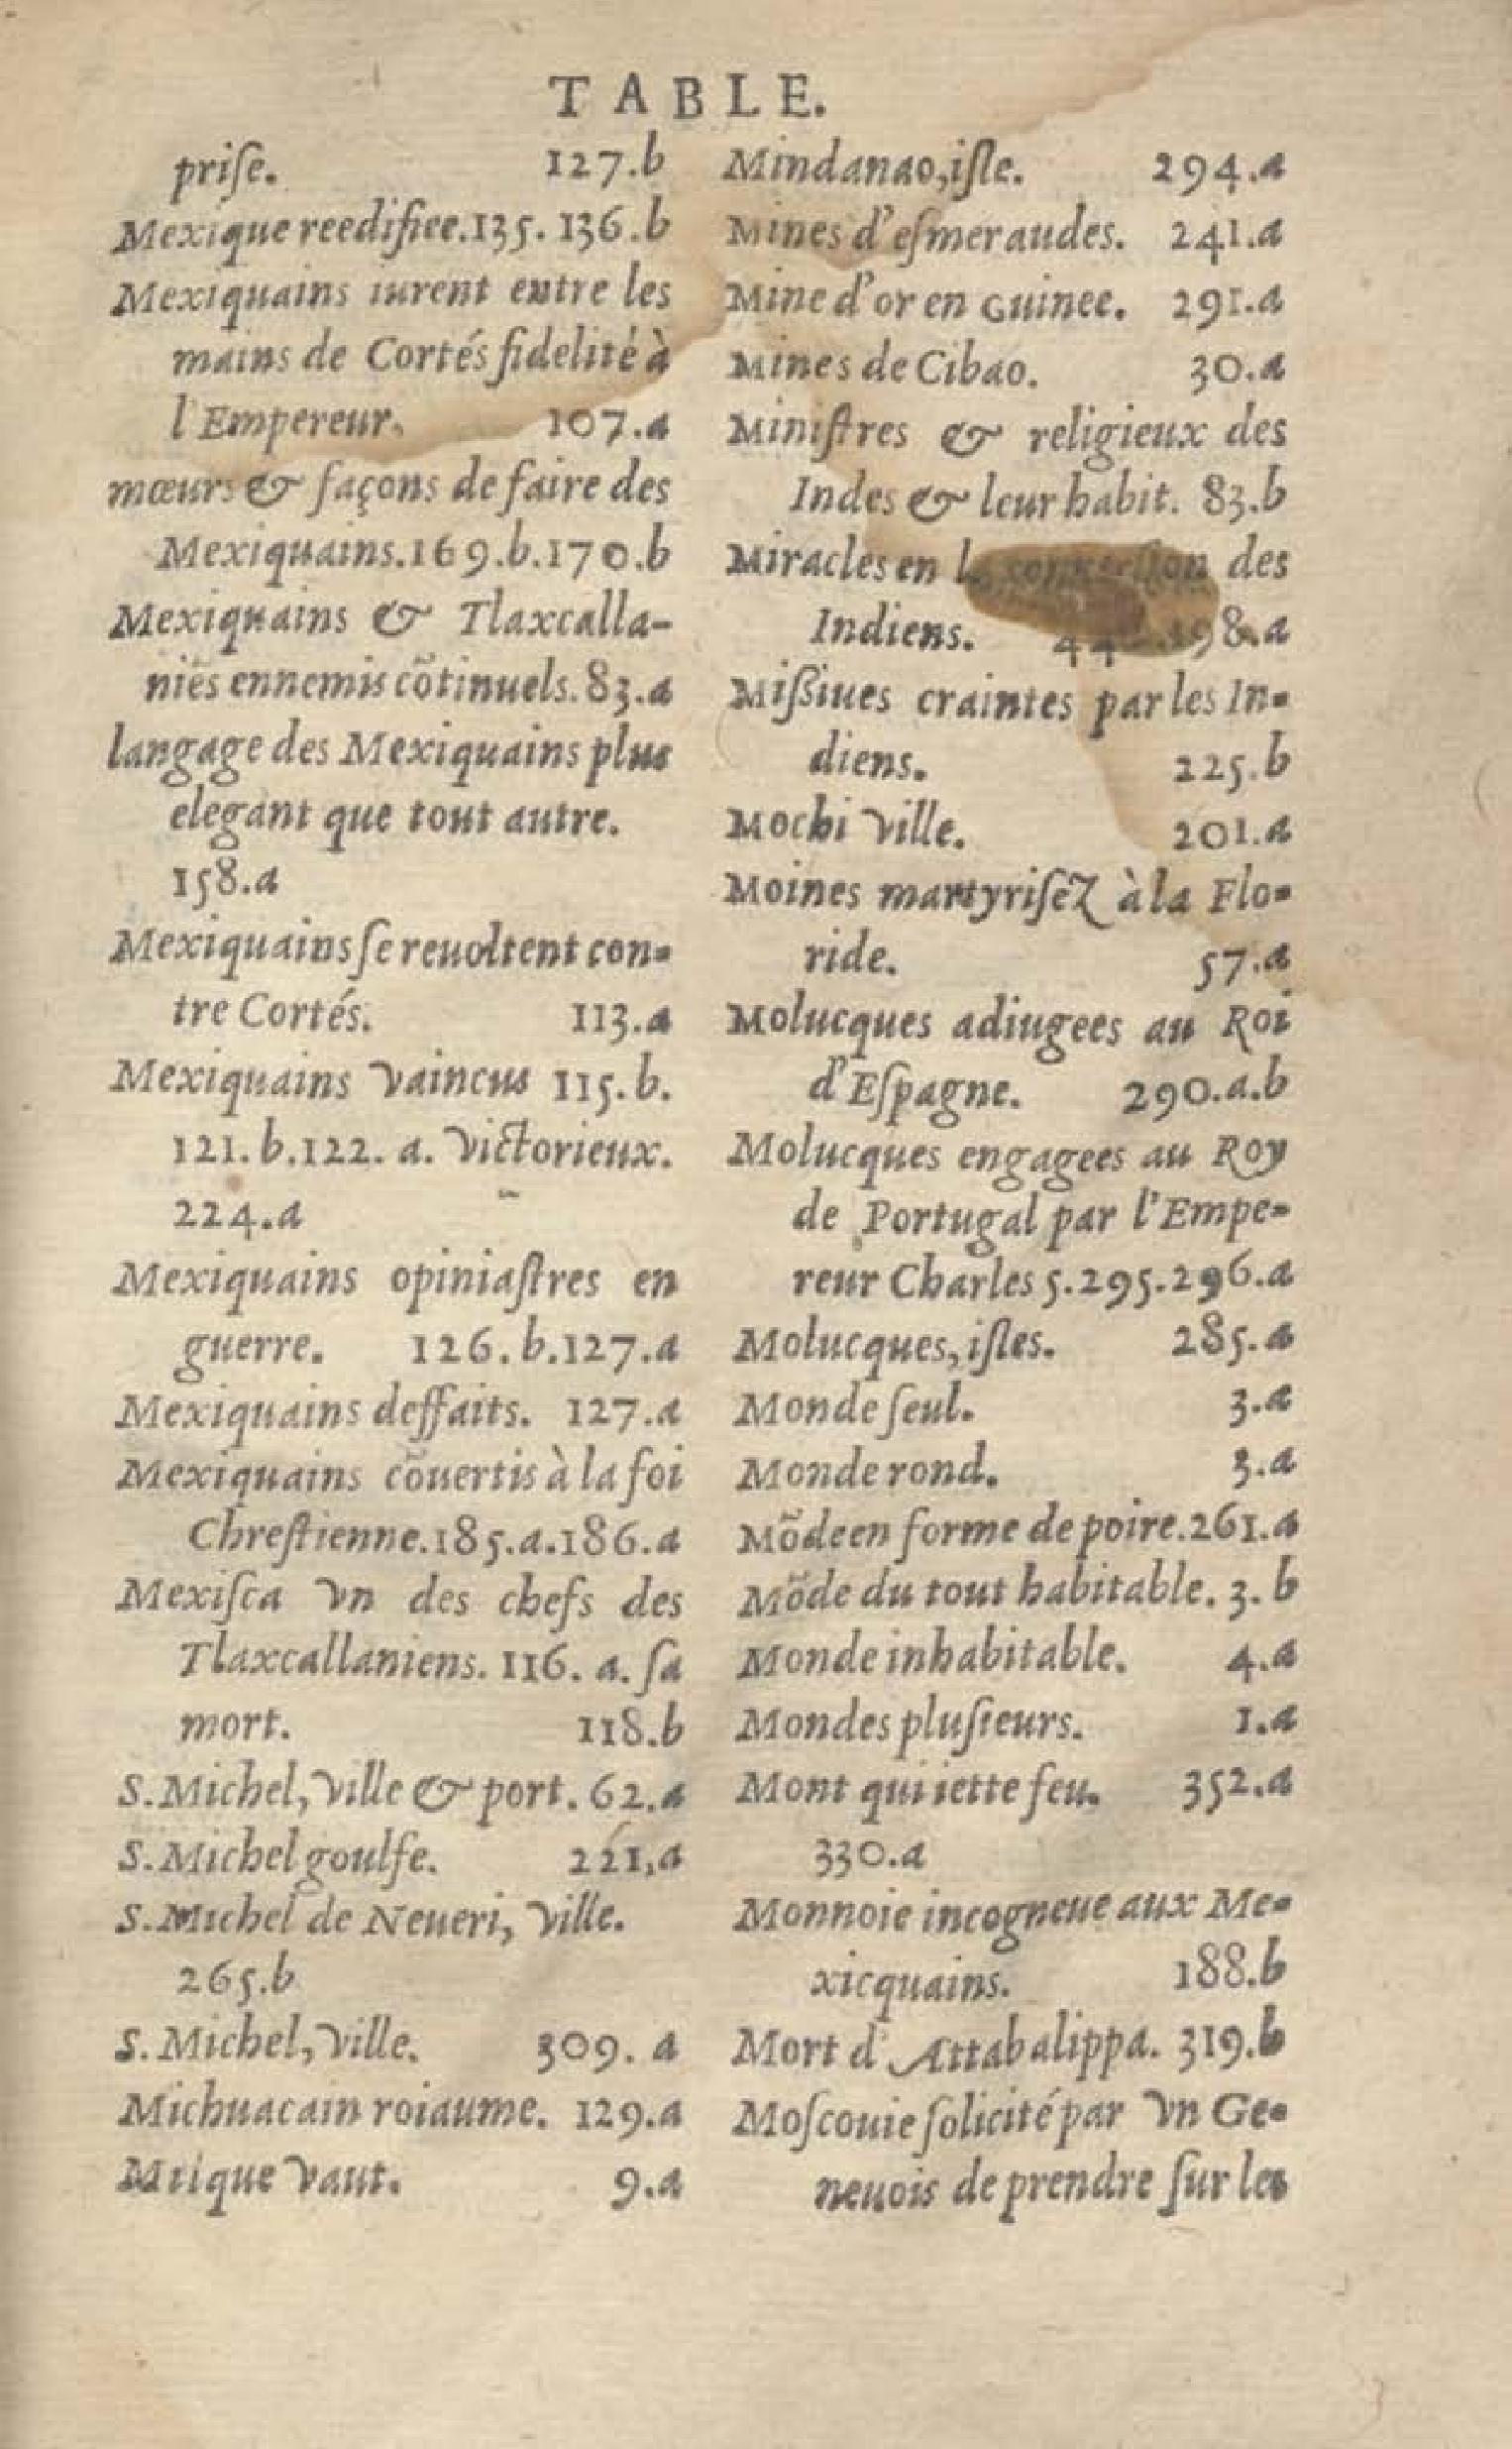 TABLE.
priſe. 127.b
Mexique reedifiee.135. 136.b
Mexiquains iurent entre les
mains de Cortés fidelité à
l'Empereur. 107.a
mœurs & façons de faire des
Mexiquains.169.b.170.b
Mexiquains & Tlaxcalla-
niēs ennemis cōtinuels. 83.a
langage des Mexiquains plus
elegant que tout autre.
158.a
Mexiquains ſe reuoltent con-
tre Cortés. 113.a
Mexiquains vaincus 115.b.
121.b.122. a. victorieux.
224.a
Mexiquains opiniaſtres en
guerre. 126.b.127.a
Mexiquains deffaits. 127.a
Mexiquains cōuertis à la foi
Chreſtienne.185.a.186.a
Mexiſca vn des chefs des
Tlaxcallaniens. 116. a. ſa
mort. 118.b
S.Michel, ville & port. 62.a
S.Michel goulfe. 221,a
S.Michel de Neueri, ville.
265.b
S.Michel, ville. 309. a
Michuacain roiaume. 129.a
Mtique vaut. 9.a
Mindanao, iſle. 294.a
Mines d'eſmeraudes. 241.a
Mine d'or en Guinee. 291.a
Mines de Cibao. 30.a
Miniſtres & religieux des
Indes & leur habit. 83.b
Miracles en des
Indiens.
Miſsiues craintes par les In-
diens. 225.b
Mochi ville. 201.a
Moines martyriſez à la Flo-
ride. 57.a
Molucques adiugees au Roi
d'Eſpagne. 290.a.b
Molucques engagees au Roy
de Portugal par l'Empe-
reur Charles 5.295.296.a
Molucques, iſles. 285.a
Monde ſeul. 3.a
Monde rond. 3.a
Mōde en forme de poire.261.a
Mōde du tout habitable. 3. b
Monde inhabitable. 4.a
Mondes pluſieurs. 1.a
Mont qui iette feu. 352.a
330.a
Monnoie incogneue aux Me-
xicquains. 188.b
Mort d'Attabalippa. 319.b
Moſcouie ſolicité par vn Ge-
neuois de prendre ſur les